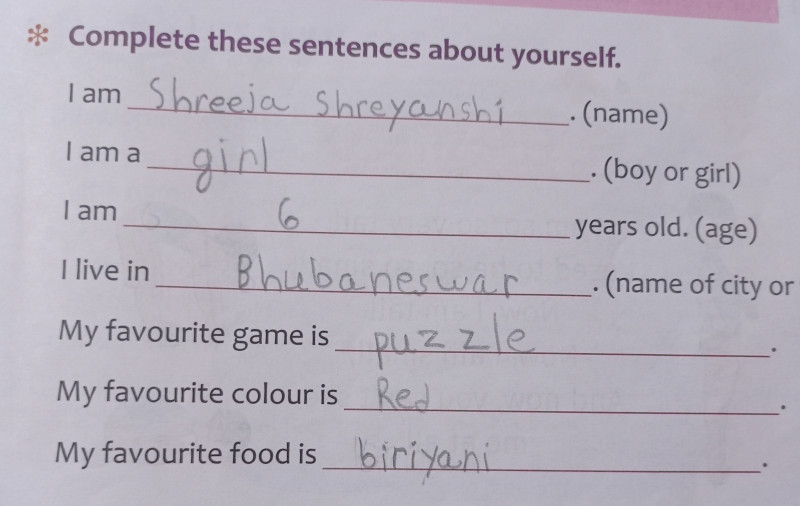 * Complete these sentences about yourself.
I am Shreeja Shreyanshi . (name)
I am a girl . (boy or girl)
I am 6 years old. (age)
I live in Bhubaneswar . (name of city or
My favourite game is puzzle .
My favourite colour is Red .
My favourite food is biriyani .